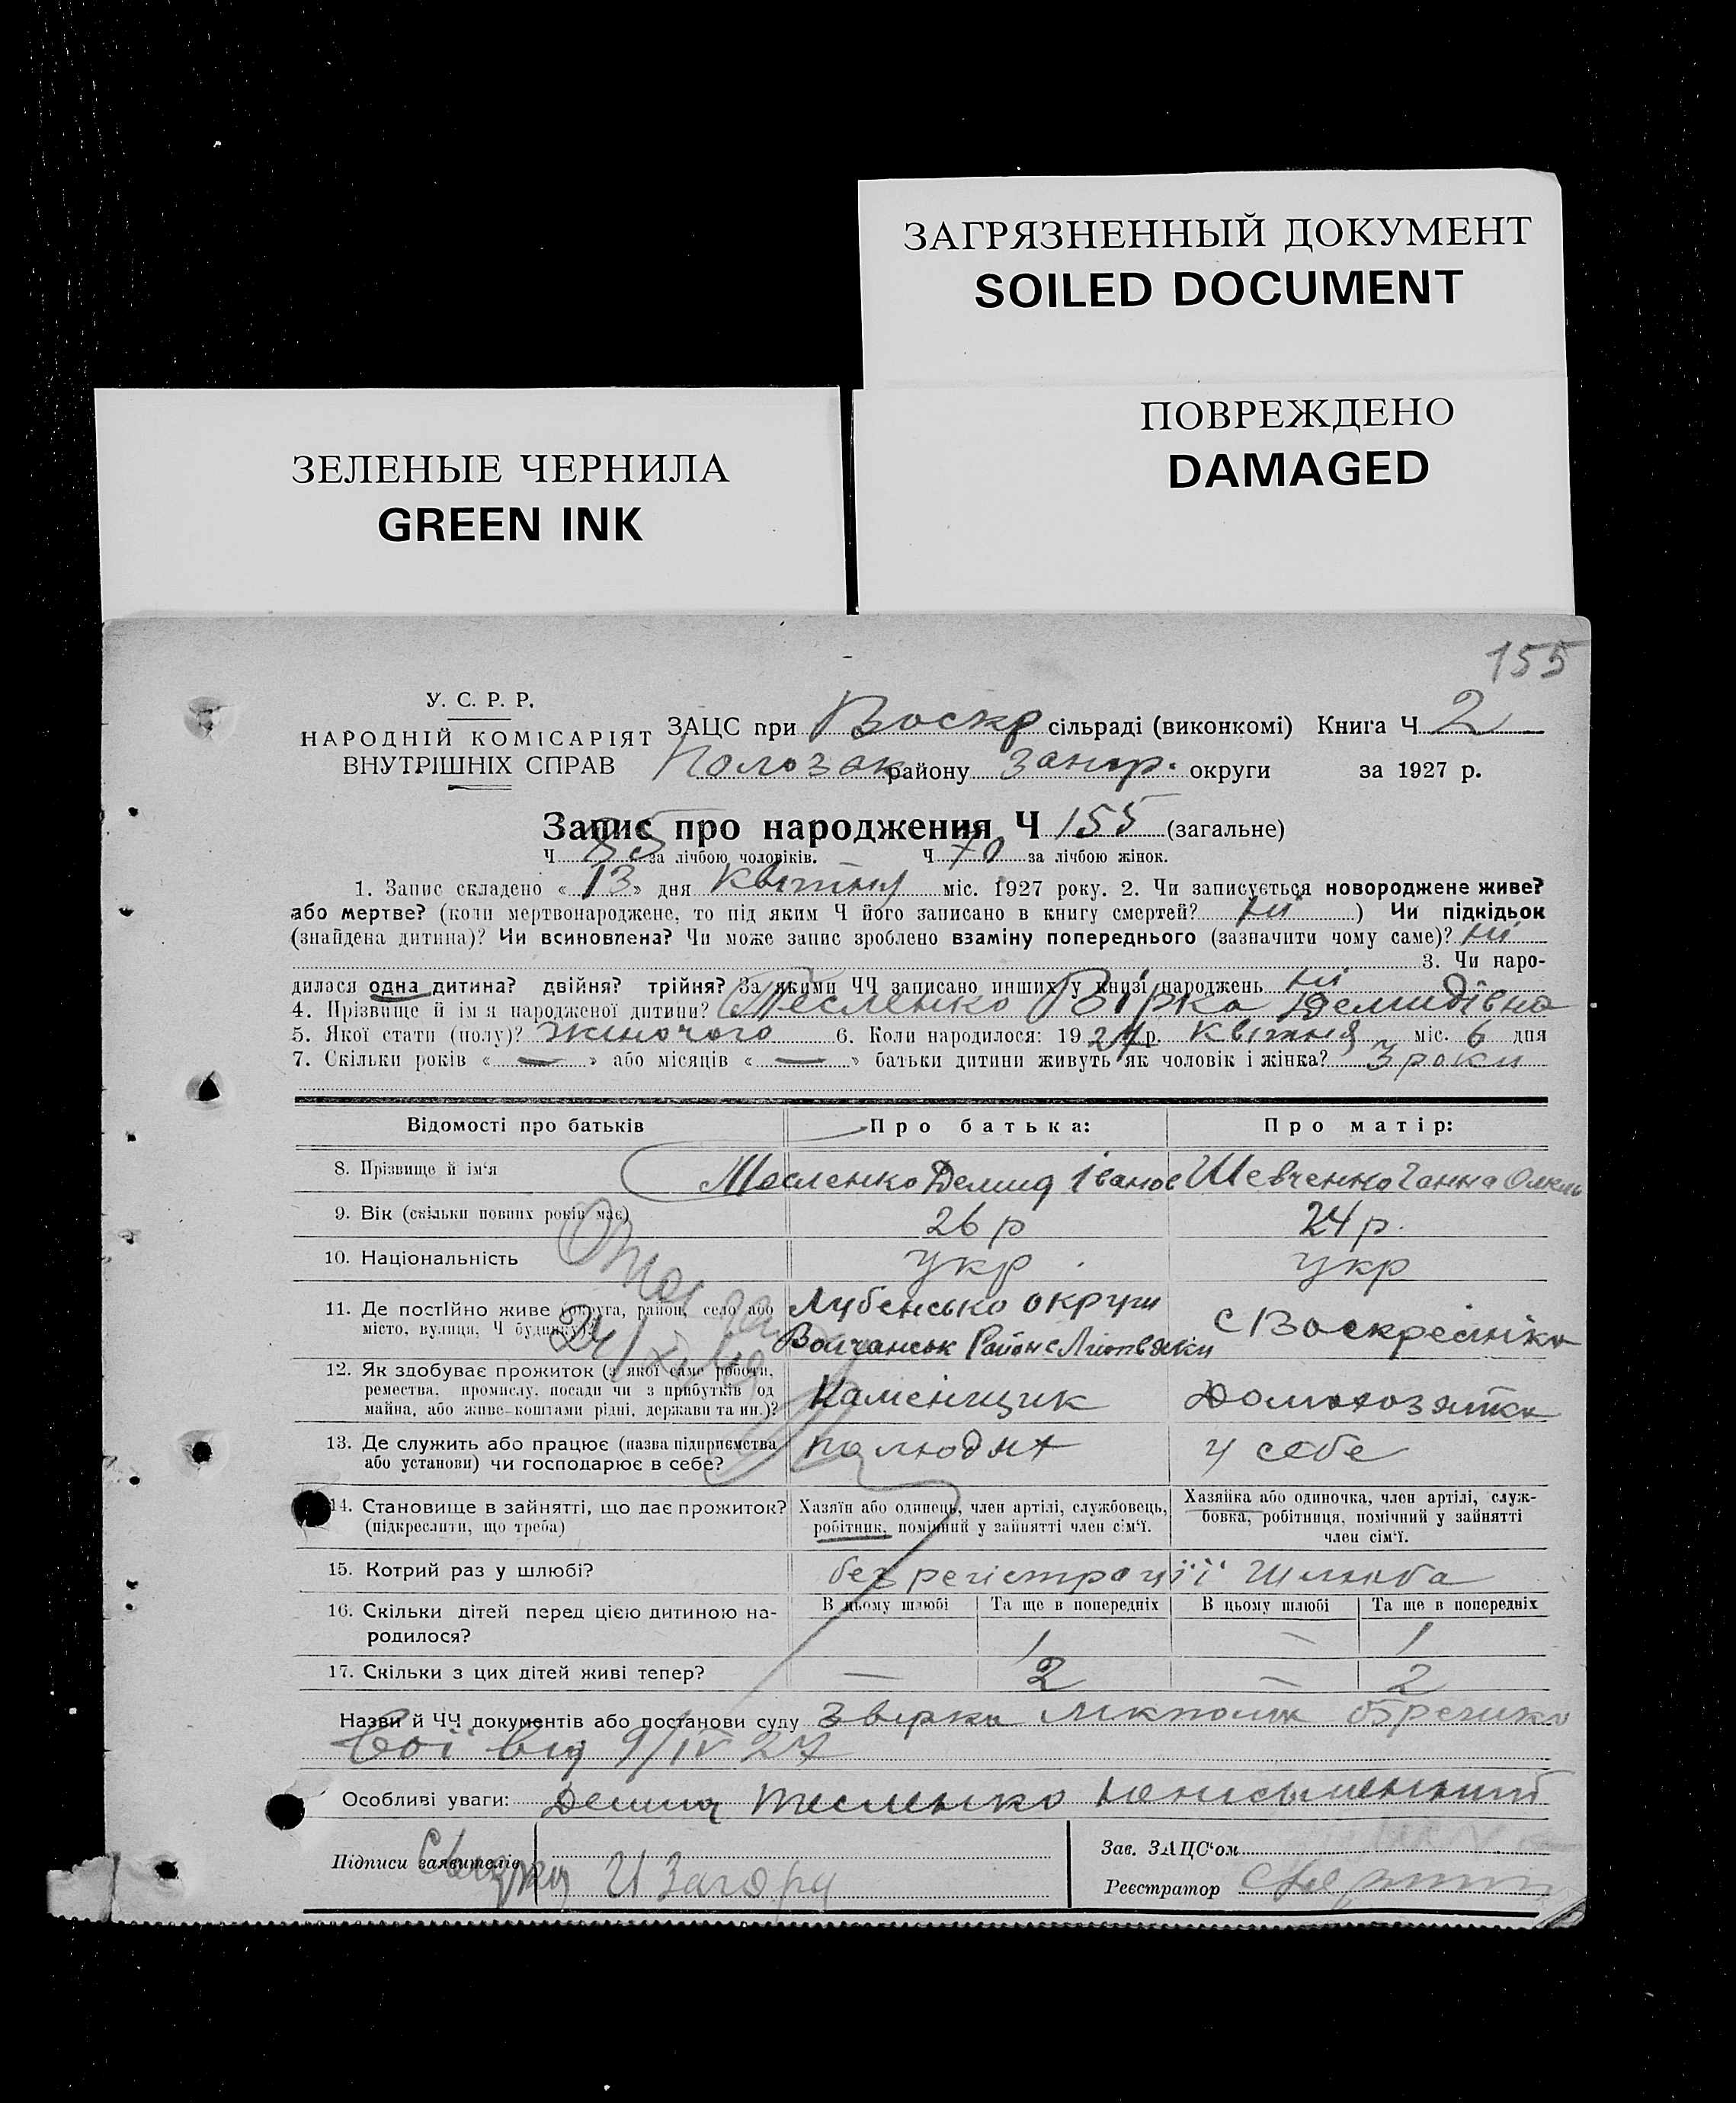 ЗАГРЯЗНЕННЫЙ ДОКУМЕНТ
SOILED DOCUMENT
ПОВРЕЖДЕНО
DAMAGED
ЗЕЛЕНЫЕ ЧЕРНИЛА
GREEN INK
155
У. С. Р. Р.
НАРОДНІЙ КОМІСАРІЯТ
ВНУТРІШНІХ СПРАВ
ЗАЦС при Воскр сільраді (виконкомі) Книга Ч 2
району Запор. округи за 1927 р.
Запис про народження Ч 155 (загальне)
Ч 85 за лічбою чоловіків. Ч 70 за лічбою жінок.
1. Запис складено « 13 » дня квітня міс. 1927 року. 2. Чи записується новороджене живе?
або мертве? (коли мертвонароджене, то під яким Ч його записано в книгу смертей? ні ) Чи підкідьок
(знайдена дитина)? Чи всиновлена? Чи може запис зроблено взаміну попереднього (зазначити чому саме)? ні
3. Чи наро-
дилася одна дитина? двійня? трійня? За якими ЧЧ записано инших у книзі народжень ні
4. Прізвище й ім я народженої дитини? Тесленко Вірка Демидівна
5. Якої стати (полу)? жиночого 6. Коли народилося: 1927 р. квітня міс. 6 дня
7. Скільки років « — » або місяців « — » батьки дитини живуть як чоловік і жінка? 3 роки
Відомості про батьків Про батька: Про матір:
8. Прізвище й ім'я Тесленко Демид Іванов Шевченко Ганна
9. Вік (скільки повних років має) 26 р 24 р.
10. Національність укр укр
11. Де постійно живе (округа, район, село або Лубенсько округи с Воскресінка
місто, вулиця, Ч будинку)? Район с
12. Як здобуває прожиток (з якої саме роботи,
ремества, промислу, посади чи з прибутків од Каменщик Домохозяйка
майна, або живе коштами рідні, держави та ин.)?
13. Де служить або працює (назва підприємства по людях у себе
або установи) чи господарює в себе?
14. Становище в зайнятті, що дає прожиток? Хазяїн або одинець, член артілі, службовець, Хазяйка або одиночка, член артілі, служ-
(підкреслити, що треба) робітник, помічний у зайнятті член сім'ї. бовка, робітниця, помічний у зайнятті
член сім'ї.
15. Котрий раз у шлюбі? без регістрації шлюба
16. Скільки дітей перед цією дитиною на- В цьому шлюбі Та ще в попередніх В цьому шлюбі Та ще в попередніх
родилося? 1 — 1
17. Скільки з цих дітей живі тепер? — 2 — 2
Назви й ЧЧ документів або постанови суду
від 9/IV 27
Особливі уваги: Демид Тесленко неписьменний
Підписи заявителів
Зав. ЗАЦС'ом
Реєстратор